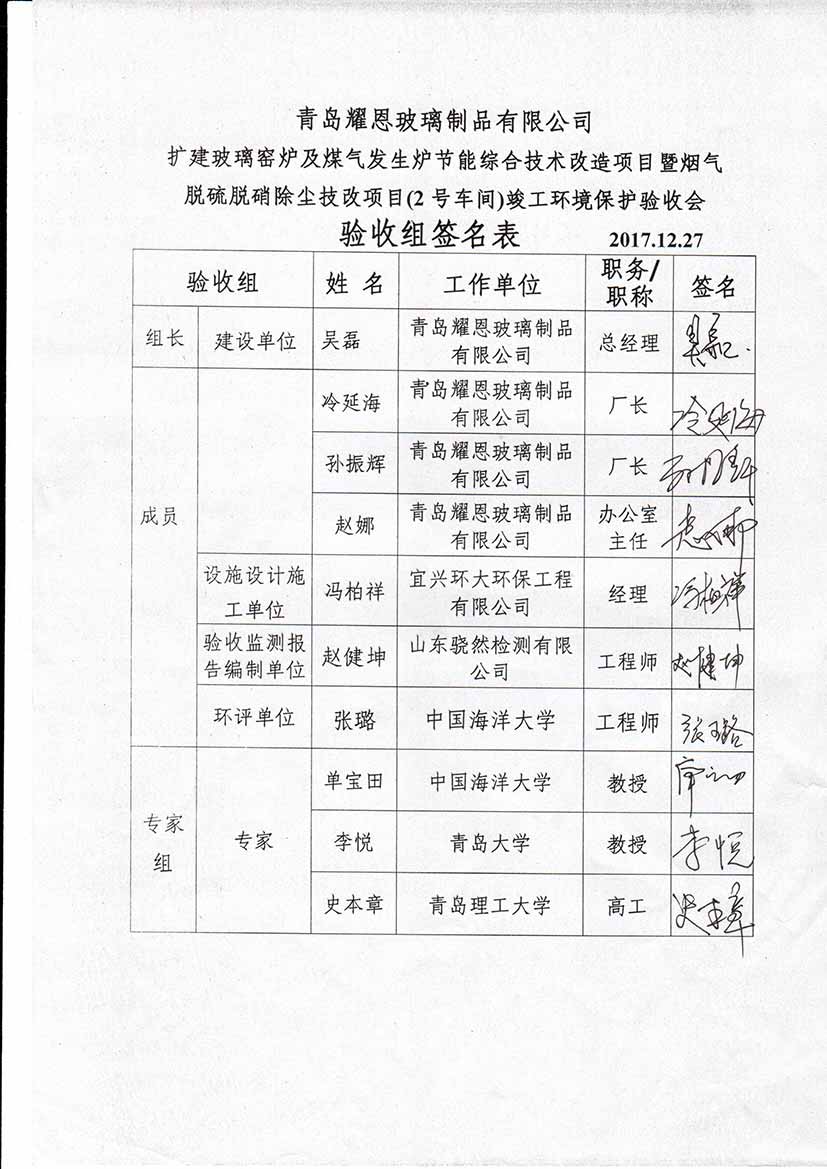 青岛耀恩玻璃制品有限公司
扩建玻璃窑炉及煤气发生炉节能综合技术改造项目暨烟气
脱硫脱硝除尘技改项目(2号车间)竣工环境保护验收会
验收组签名表 2017.12.27
验收组 姓名 工作单位 职务/
职称 签名
组长 建设单位 吴磊 青岛耀恩玻璃制品
有限公司 总经理 吴磊
成员 冷延海 青岛耀恩玻璃制品
有限公司 厂长 冷延海
孙振辉 青岛耀恩玻璃制品
有限公司 厂长
赵娜 青岛耀恩玻璃制品
有限公司 办公室
主任
设施设计施
工单位 冯柏祥 宜兴环大环保工程
有限公司 经理 冯柏祥
验收监测报
告编制单位 赵健坤 山东骁然检测有限
公司 工程师 赵健坤
环评单位 张璐 中国海洋大学 工程师 张璐
专家
组 专家 单宝田 中国海洋大学 教授
李悦 青岛大学 教授 李悦
史本章 青岛理工大学 高工 史本章